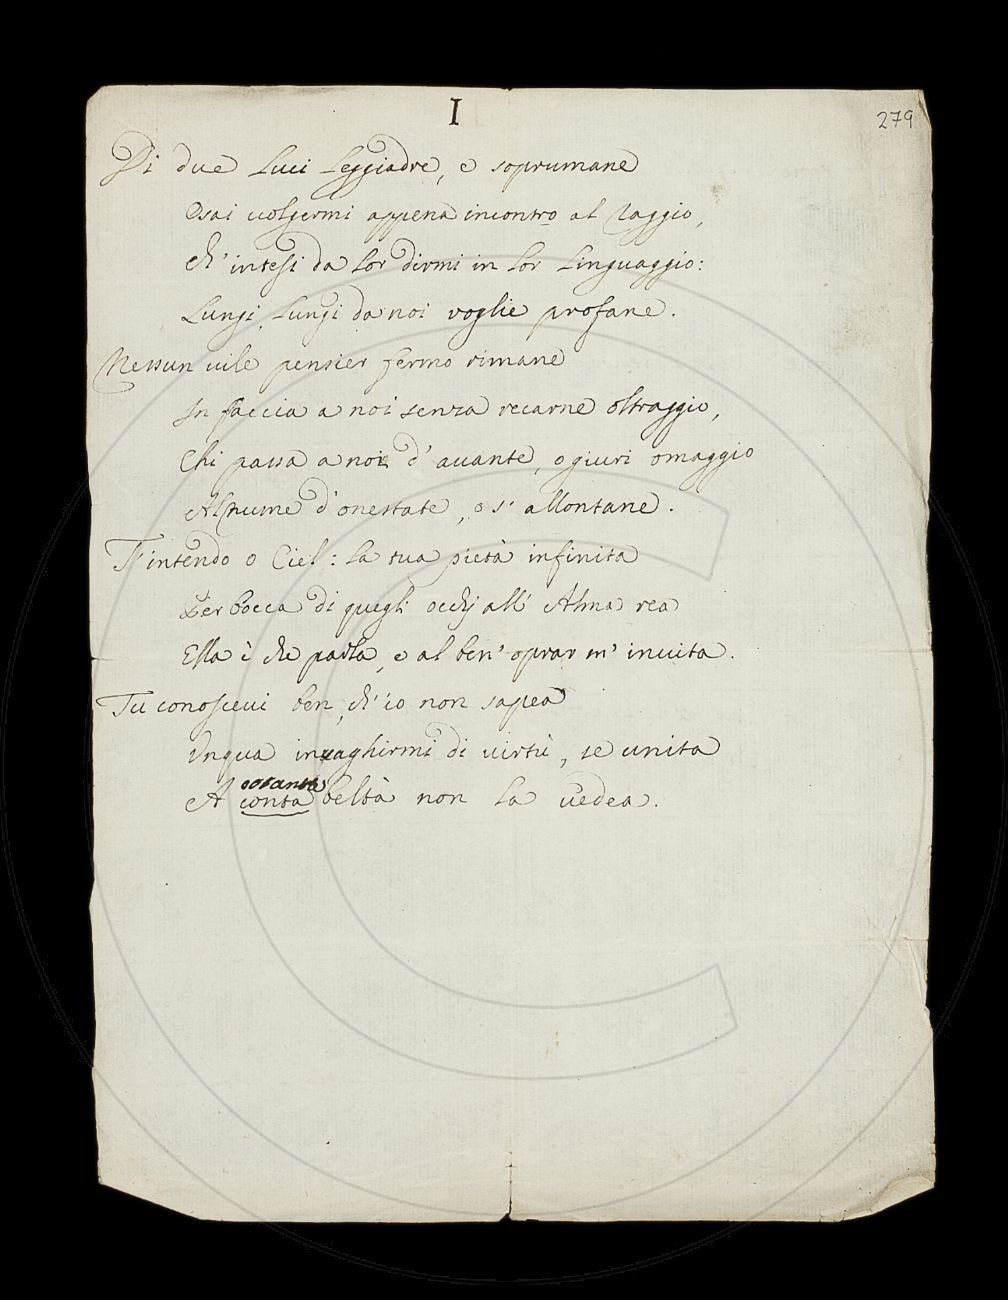 I
279
Di due Luci Leggiadre, e soprumane
Osai uolgermi appena incontro al Raggio,
Ch' intesi da lor dirmi in lor Linguaggio:
Lungi, Lungi da noi voglie profane.
Nessun uile pensier fermo rimane
In faccia a noi senza recarne oltraggio,
Chi passa a noi d' auante, o giuri omaggio
Al nume d' onestate, o s' allontane.
T' intendo o Ciel: la tua pietà infinita
Per bocca di quegli occhj all' Alma rea
Ella è che parla, e al ben' oprar m' inuita.
Tu conosceui ben, ch' io non sapea
Unqua inuaghirmi di uirtù, se unita
A conta beltà non la uedea.
cotanta